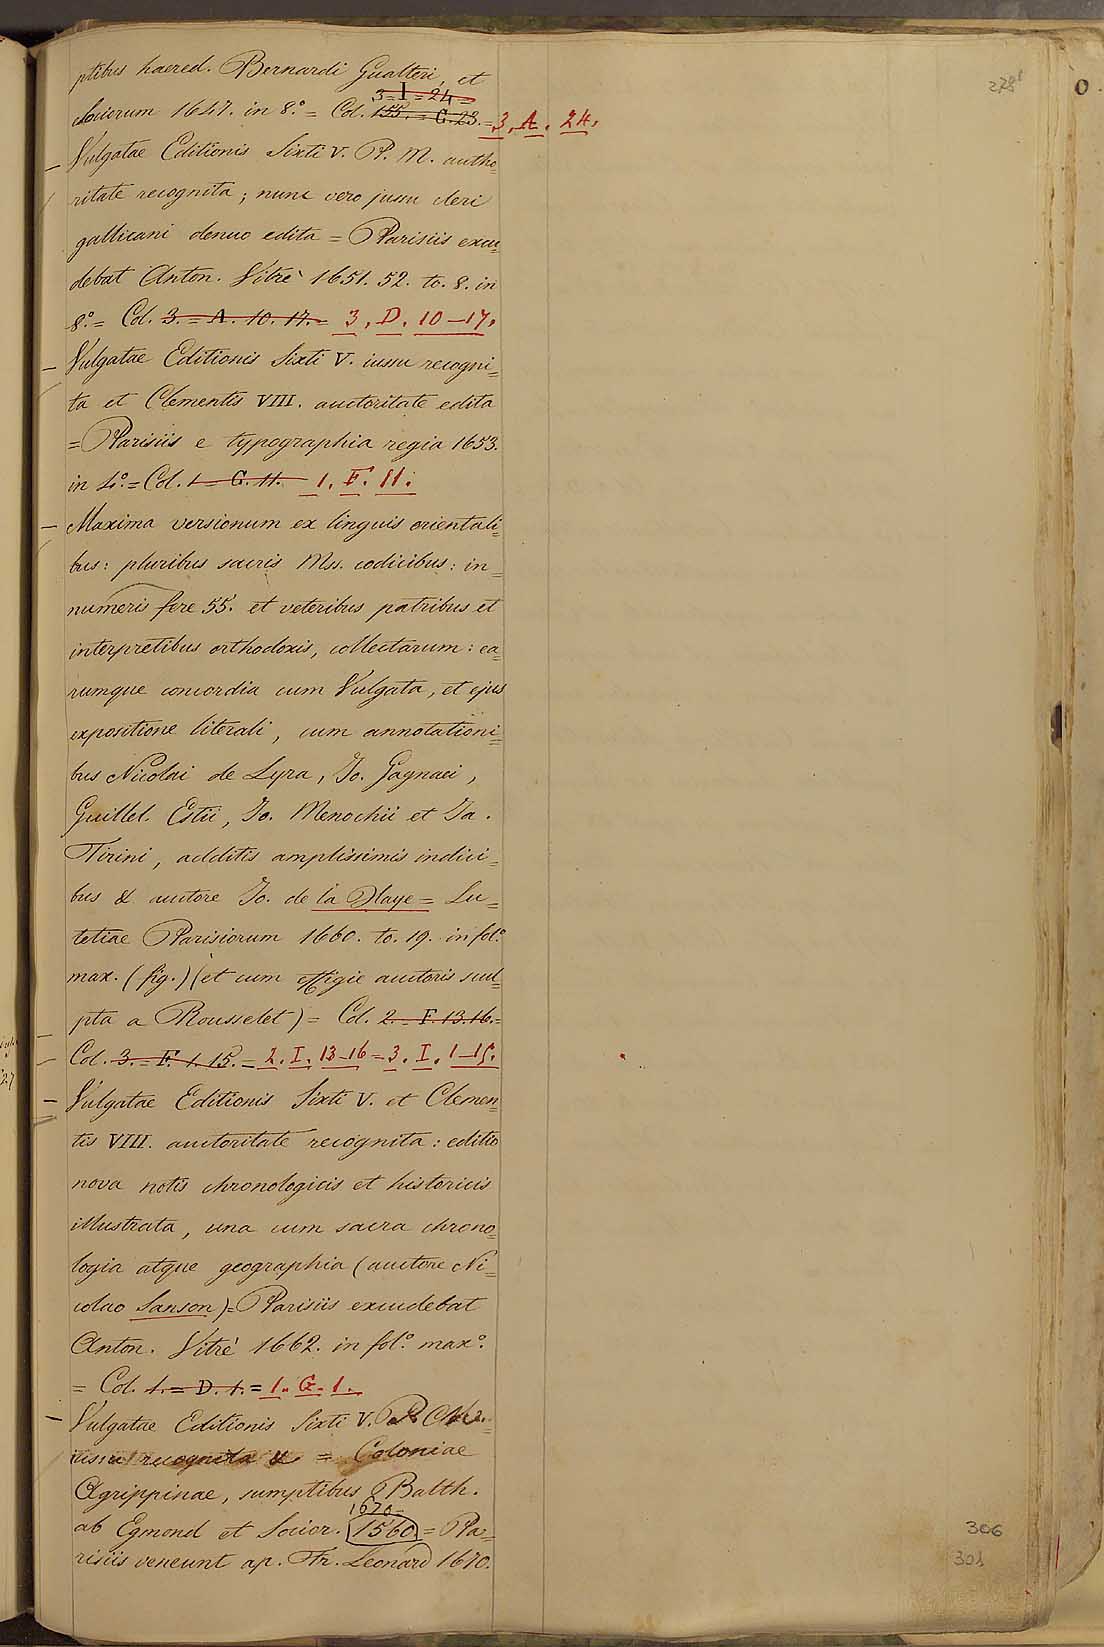 278
0
ptibus haered. Bernardi Gualteri, et
3 = I = 24 =
sociorum 1647. in 8.º = Col. 155. = G. 23. = 3. A. 24.
— Vulgatae Editionis Sixti V. P. M. autho=
ritate recognita; nunc vero jussu cleri
gallicani denuo edita = Parisiis excu=
debat Anton. Vitrè 1651. 52. to. 8. in
8.º = Col. 3. = A. 10. 17. = 3. D. 10–17.
— Vulgatae Editionis Sixti V. iussu recogni=
ta et Clementis VIII. auctoritate edita
= Parisiis e typographia regia 1653.
in 4.º = Col. 1 = G. 11. 1. F. 11.
— Maxima versionum ex linguis orientali=
bus: pluribus sacris Mss. codicibus: in=
numeris fere 55. et veteribus patribus et
interpretibus orthodoxis, collectarum: ea=
rumque concordia cum Vulgata, et ejus
expositione literali, cum annotationi=
bus Nicolai de Lyra, Jo. Gagnaei,
Guillel. Estii, Jo. Menochii et Ja.
Tirini, additis amplissimis indici=
bus & auctore Jo. de la Haye = Lu=
tetiae Parisiorum 1660. to. 19. in fol.º
max. (fig.) (et cum effigie auctoris scul=
pta a Rousselet) = Col. 2. = F. 13. 16. =
Col. 3. = F. 1. 15. = 2. I. 13–16 = 3. I. 1–15.
— Vulgatae Editionis Sixti V. et Clemen=
tis VIII. auctoritate recognita: editio
nova notis chronologicis et historicis
illustrata, una cum sacra chrono=
logia atque geographia (auctore Ni=
colao Sanson) = Parisiis excudebat
Anton. Vitrè 1662. in fol.º max.º
= Col. 1. = D. 1. = 1. G. 1.
— Vulgatae Editionis Sixti V. P.
recognita & = Coloniae
Agrippinae, sumptibus Balth.
1670 =
ab Egmond et Socior. 1560. = Pa=
risiis veneunt ap. Fr. Leonard 1670.
306
301